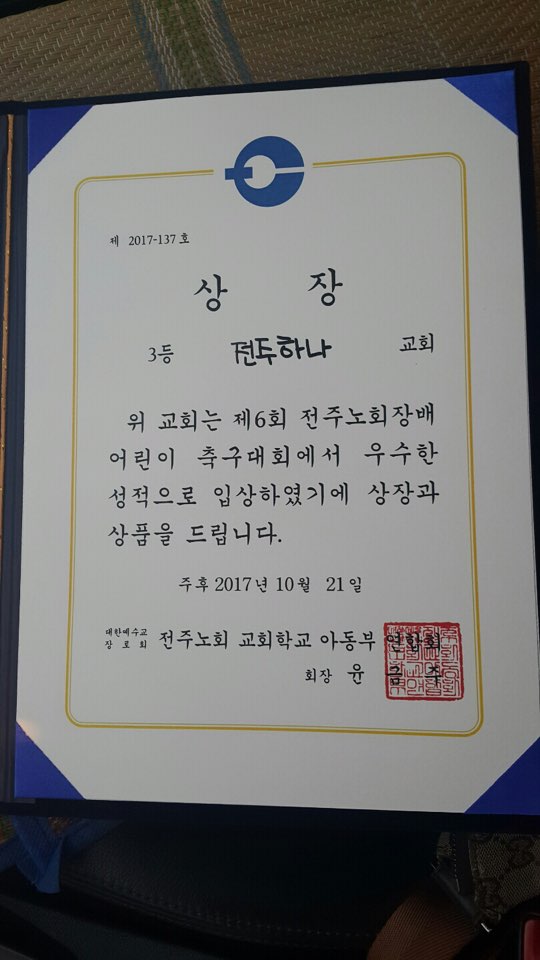 제 2017-137 호
상 장
3등 전주하나 교회
위 교회는 제6회 전주노회장배
어린이 축구대회에서 우수한
성적으로 입상하였기에 상장과
상품을 드립니다.
주후 2017년 10월 21일
대한예수교
장로회
전주노회 교회학교 아동부 연합회
회장 윤 금 주